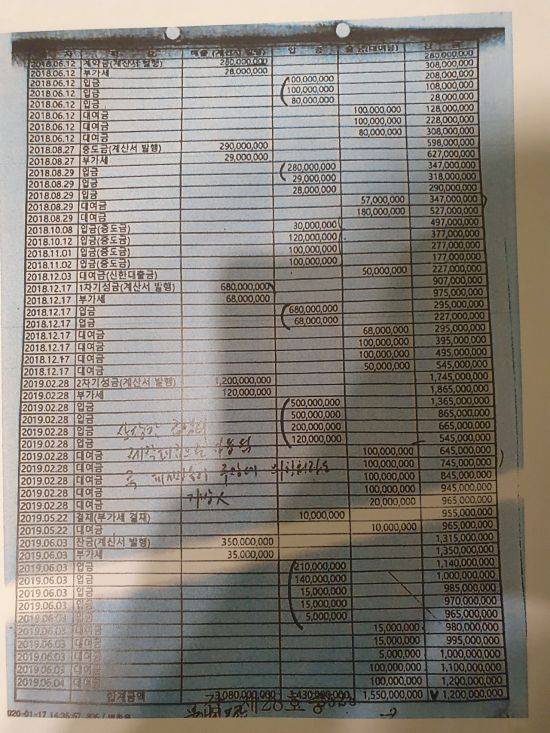 2018.06.12 계약금(계산서 발행) 280,000,000
2018.06.12 부가세 28,000,000 308,000,000
2018.06.12 입금 100,000,000 208,000,000
2018.06.12 입금 100,000,000 108,000,000
2018.06.12 입금 80,000,000 28,000,000
2018.06.12 대여금 100,000,000 128,000,000
2018.06.12 대여금 100,000,000 228,000,000
2018.06.12 대여금 80,000,000 308,000,000
2018.08.27 중도금(계산서 발행) 290,000,000 598,000,000
2018.08.27 부가세 29,000,000 627,000,000
2018.08.29 입금 280,000,000 347,000,000
2018.08.29 입금 29,000,000 318,000,000
2018.08.29 입금 28,000,000 290,000,000
2018.08.29 대여금 57,000,000 347,000,000
2018.08.29 대여금 180,000,000 527,000,000
2018.10.08 입금(중도금) 30,000,000 497,000,000
2018.10.12 입금(중도금) 120,000,000 377,000,000
2018.11.01 입금(중도금) 100,000,000 277,000,000
2018.11.02 입금(중도금) 100,000,000 177,000,000
2018.12.03 대여금(신한대출금) 50,000,000 227,000,000
2018.12.17 1차기성금(계산서 발행) 680,000,000 907,000,000
2018.12.17 부가세 68,000,000 975,000,000
2018.12.17 입금 680,000,000 295,000,000
2018.12.17 입금 68,000,000 227,000,000
2018.12.17 대여금 68,000,000 295,000,000
2018.12.17 대여금 100,000,000 395,000,000
2018.12.17 대여금 100,000,000 495,000,000
2018.12.17 대여금 50,000,000 545,000,000
2019.02.28 2차기성금(계산서 발행) 1,200,000,000 1,745,000,000
2019.02.28 부가세 120,000,000 1,865,000,000
2019.02.28 입금 500,000,000 1,365,000,000
2019.02.28 입금 500,000,000 865,000,000
2019.02.28 입금 200,000,000 665,000,000
2019.02.28 입금 120,000,000 545,000,000
2019.02.28 대여금 100,000,000 645,000,000
2019.02.28 대여금 100,000,000 745,000,000
2019.02.28 대여금 100,000,000 845,000,000
2019.02.28 대여금 100,000,000 945,000,000
2019.02.28 대여금 20,000,000 965,000,000
2019.05.22 결재(부가세 결재) 10,000,000 955,000,000
2019.05.22 대여금 10,000,000 965,000,000
2019.06.03 잔금(계산서 발행) 350,000,000 1,315,000,000
2019.06.03 부가세 35,000,000 1,350,000,000
2019.06.03 입금 210,000,000 1,140,000,000
2019.06.03 입금 140,000,000 1,000,000,000
2019.06.03 입금 15,000,000 985,000,000
2019.06.03 입금 15,000,000 970,000,000
2019.06.03 입금 5,000,000 965,000,000
2019.06.03 대여금 15,000,000 980,000,000
2019.06.03 대여금 15,000,000 995,000,000
2019.06.03 대여금 5,000,000 1,000,000,000
2019.06.03 대여금 100,000,000 1,100,000,000
2019.06.04 대여금 100,000,000 1,200,000,000
합계금액 3,080,000,000 1,550,000,000 1,200,000,000